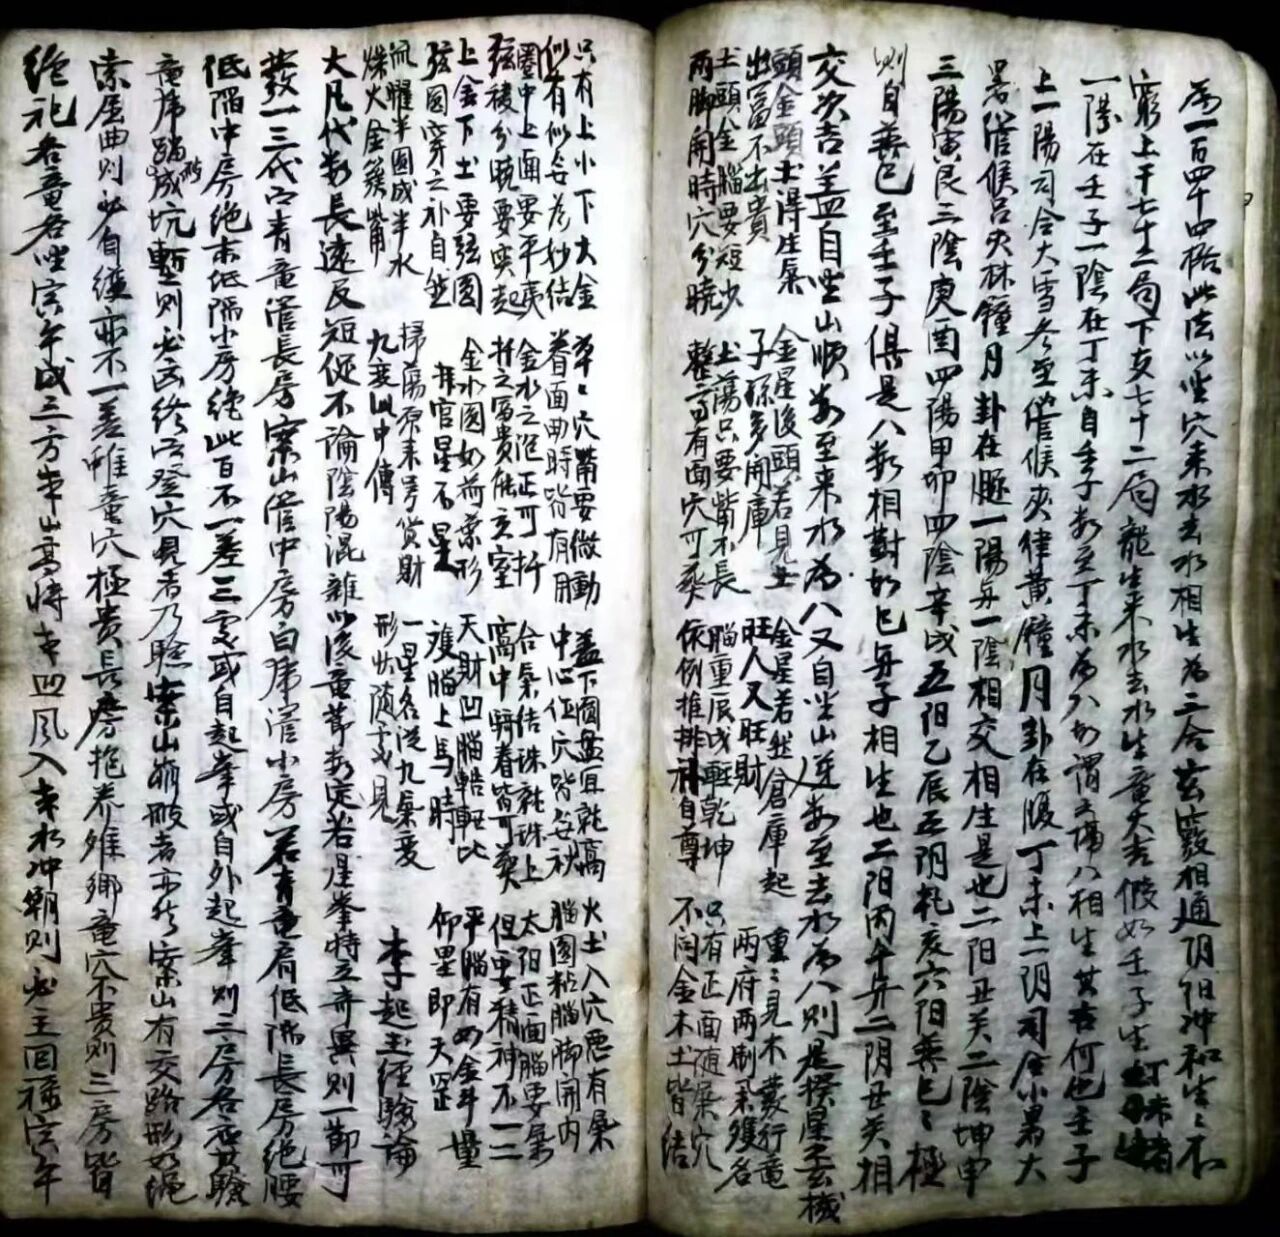 為一百四十四格此法以坐穴來水去水相生為三合玄竅相通阴阳冲和生生不
窮上干七十二局下支七十二局龍生來水去水生龍大吉假如壬子生丁未者
一陽在壬子一陰在丁未自壬子数至丁未為八如謂之隔八相生其吉何也壬子
上一陽司令大雪冬至管候夾律黃鐘月卦在復丁未上一阴司令小暑大
暑管候呂夾林鐘月卦在遯一陽與一陰相交相生是也二阳丑癸二陰坤申
三陽寅艮三陰庚酉四陽甲卯四陰辛戌五阳乙辰五阴乾亥六阳巽巳巳極
則自巽巳至壬子俱是八数相對如巳與子相生也二阳丙午與二阴丑癸相
交次吉盖自坐山順数至來水為八又自坐山逆数至去水為八則是揆星玄機
頭金頭土得生氣 金星後頭若見土 金星若然倉庫起 重重見木裁行龍
出富不出貴 子孫多開庫 旺人又旺財 兩府兩制名後名
土頭金腦要短少 土蕩只要觜不長 腦重辰戌輕乾坤 只有正面随氣穴
兩脚開時穴分曉 整高有面穴可葵 依例推排福自尊 不问金木土皆结
只有上小下大金 草草穴觜要微動 盖下圓盖宜乾窩 火土入穴惡有氣
似有似無為妙结 眷面曲時皆有用 中心伍穴皆無秋 腦圓粘腦脚開内
圈中上面要平夷 金水之泡正可扦 合氣结珠乾珠上 太阳正面腦要氣
弦棱分曉要突起 扦之富貴能玄室 窩中騎脊皆可葵 但要精神不一二
上金下土要弦圓 金水圓如荷葉形 天財凹腦輕輕比 平腦有如金斗量
弦圓穿之补自然 扦官星不星 復腦上馬時 仰星即天罡
流曜半圓成半水 掃蕩原来号货財 一星各洗九氣变
燥火金簇觜 九变此中傳 形怯随于見 李起玉經驗論
大凡代数長遠反短促不論陰陽混雜以後龍節数定若星峯特立奇異則一節可
發一三代六青龍管長房案山管中房白虎管小房若青龍肩低陷長房绝腰
低陷中房绝末低隔小房绝此百不一差三處或自起峯或自外起峯則三房各正其驗
竜虎踏断成坑塹則必凶终凶登穴見者乃驗案山崩破者亦然案山有交路形如绳
索屈曲則必自缢亦不一差雖童穴極貴長房抱养雖鄉竜穴不貴則三房皆
绝祀各竜各坐宫年成三方峯山高峙峯凹風入峯水冲朝則必主回禄宫年